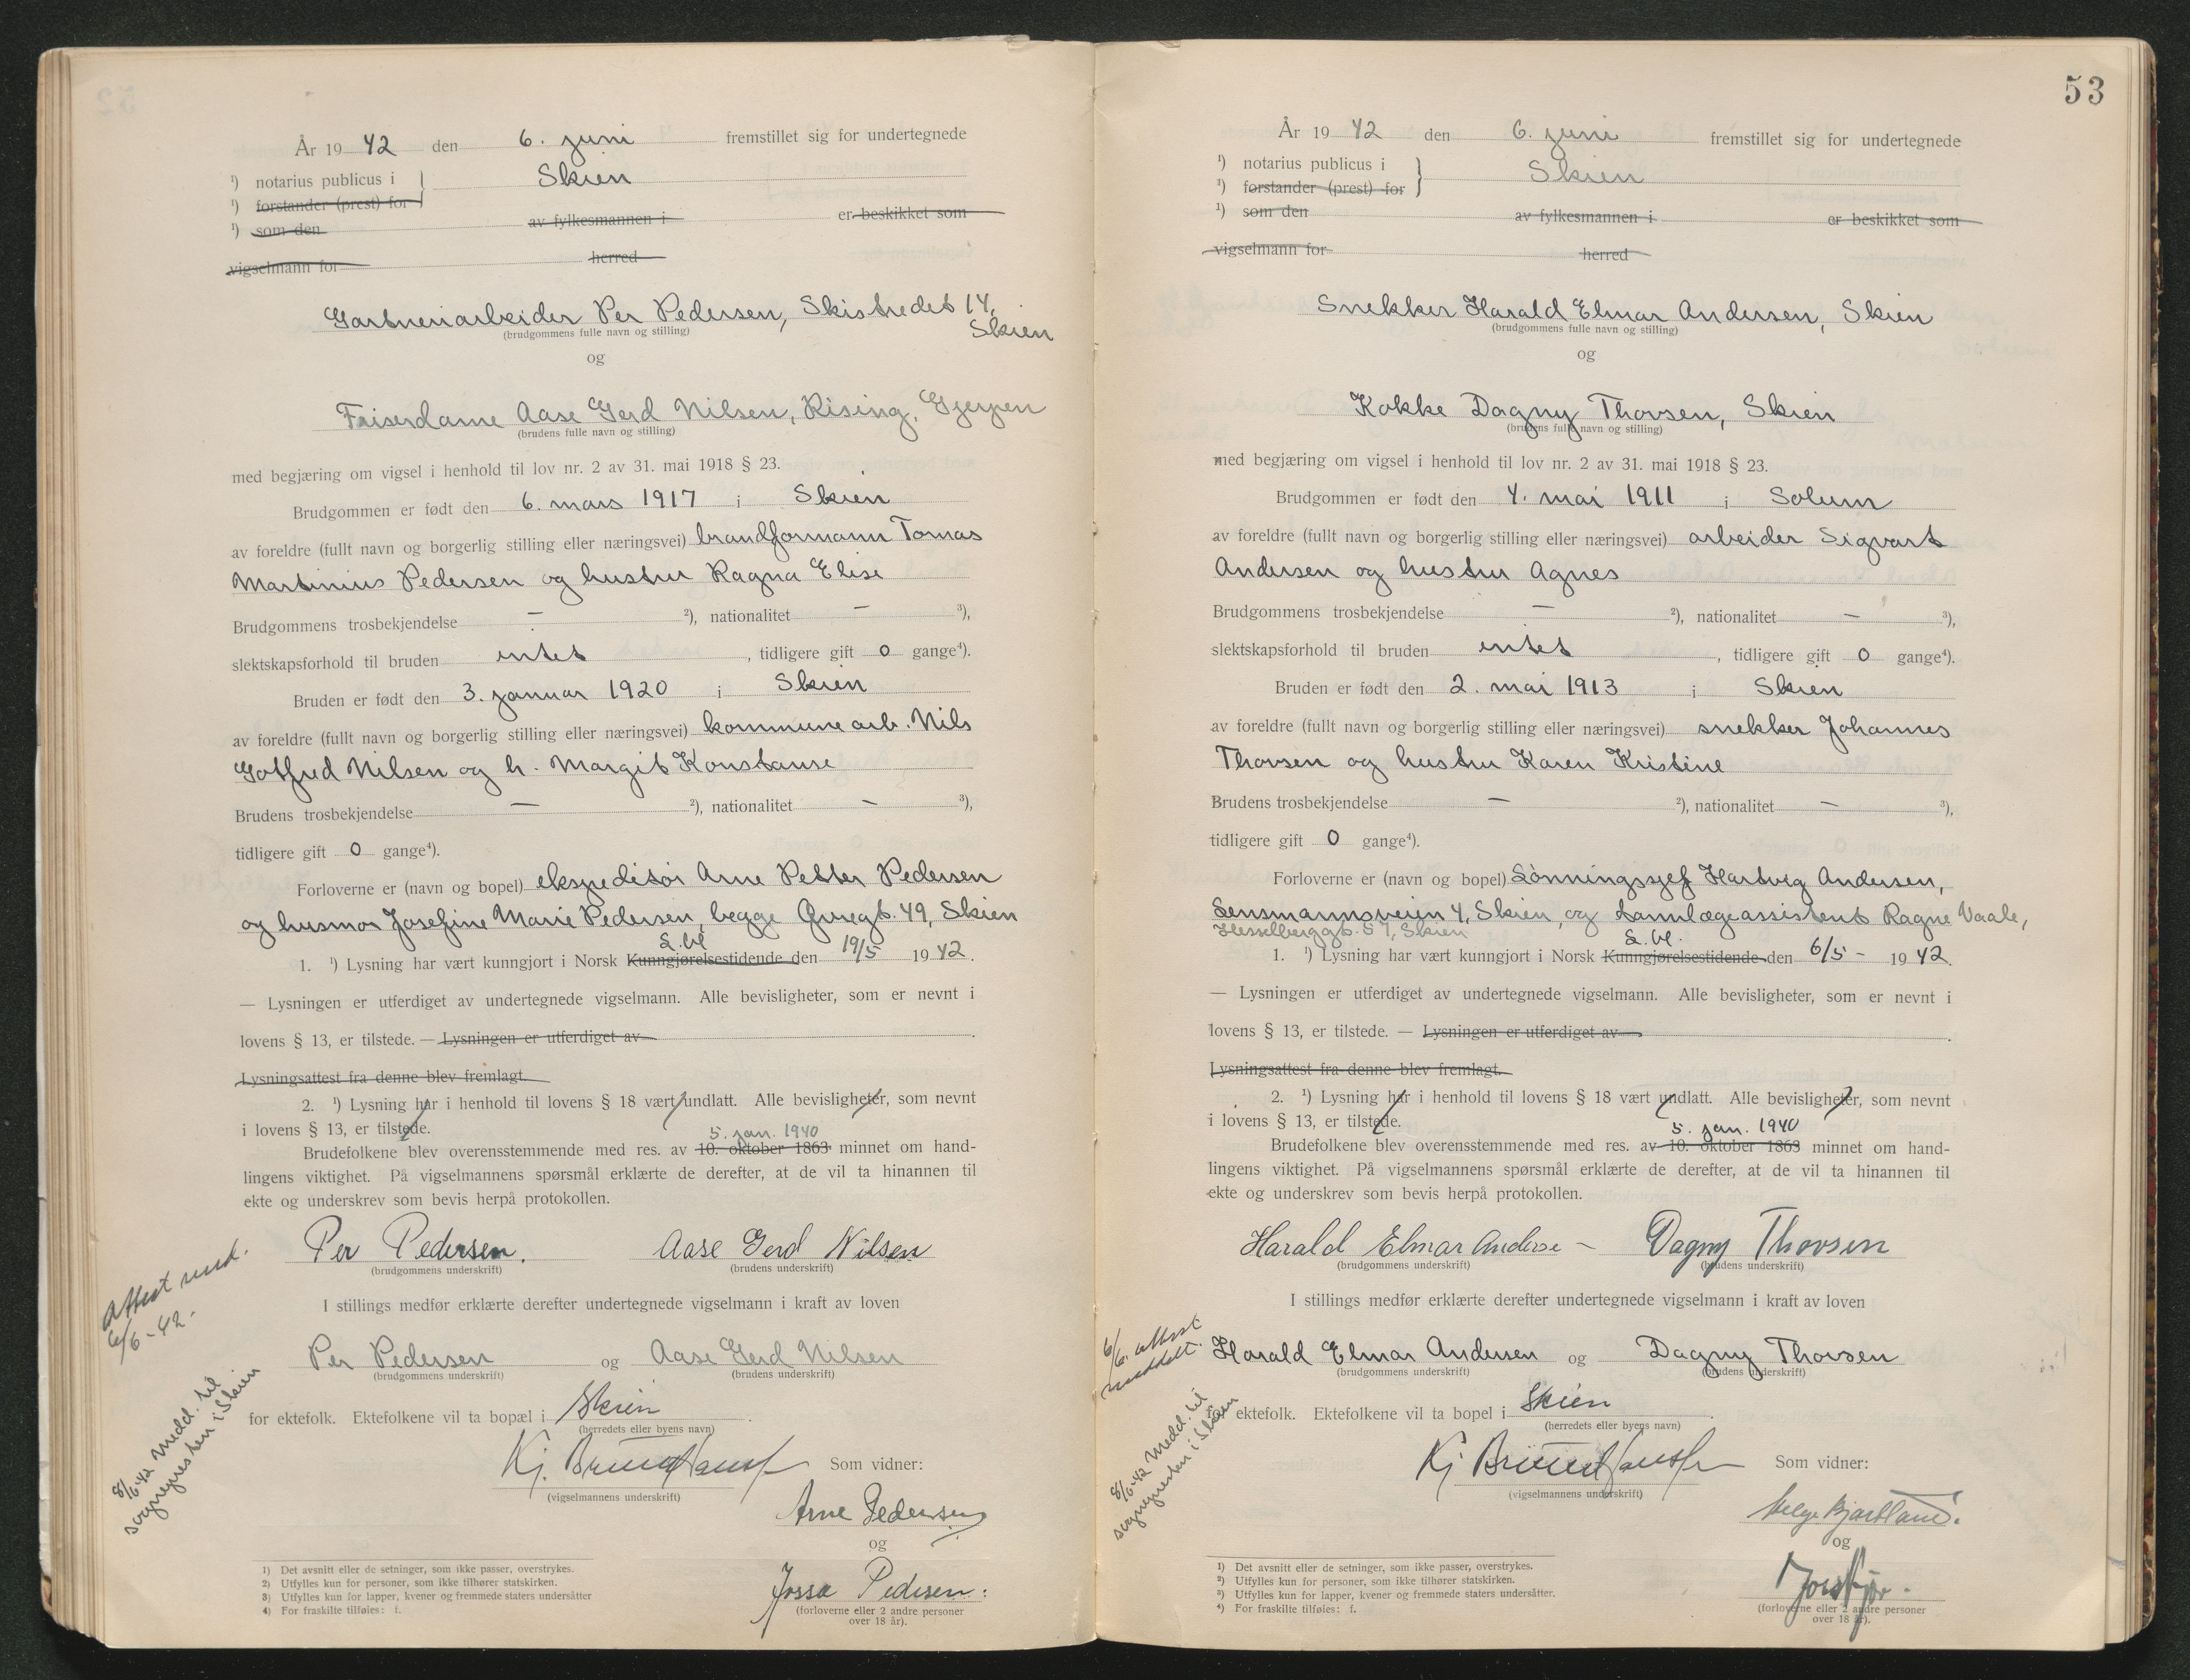 År 19 42 den 6. juni fremstillet sig for undertegnede
¹) notarius publicus i } Skien
¹) forstander (prest) for
¹) som den av fylkesmannen i er beskikket som
vigselmann for herred
Gartneriarbeider Per Pedersen, Skistredet 14,
Skien
(brudgommens fulle navn og stilling)
og
Friserdame Aase Gerd Nilsen, Rising, Gjerpen
(brudens fulle navn og stilling)
med begjæring om vigsel i henhold til lov nr. 2 av 31. mai 1918 § 23.
Brudgommen er født den 6. mars 1917 i Skien
av foreldre (fullt navn og borgerlig stilling eller næringsvei) brandformann Tomas
Martinius Pedersen og hustru Ragna Elise
Brudgommens trosbekjendelse – ²), nationalitet – ³),
slektskapsforhold til bruden intet , tidligere gift 0 gange⁴).
Bruden er født den 3. januar 1920 i Skien
av foreldre (fullt navn og borgerlig stilling eller næringsvei) kommunearb. Nils
Gotfred Nilsen og h. Margit Konstanse
Brudens trosbekjendelse – ²), nationalitet – ³),
tidligere gift 0 gange⁴).
Forloverne er (navn og bopel) ekspeditør Arne Petter Pedersen
og husmor Josefine Marie Pedersen, begge 49, Skien
S. bl
1. ¹) Lysning har vært kunngjort i Norsk Kunngjørelsestidende den 19/5 19 42.
— Lysningen er utferdiget av undertegnede vigselmann. Alle bevisligheter, som er nevnt i
lovens § 13, er tilstede. — Lysningen er utferdiget av .
Lysningsattest fra denne blev fremlagt.
2. ¹) Lysning har i henhold til lovens § 18 vært undlatt. Alle bevisligheter, som nevnt
i lovens § 13, er tilstede.
5. jan. 1940
Brudefolkene blev overensstemmende med res. av 10. oktober 1863 minnet om hand-
lingens viktighet. På vigselmannens spørsmål erklærte de derefter, at de vil ta hinannen til
ekte og underskrev som bevis herpå protokollen.
Per Pedersen. Aase Gerd Nilsen
(brudgommens underskrift) (brudens underskrift)
I stillings medfør erklærte derefter undertegnede vigselmann i kraft av loven
Attest medd.
6/6-42.
Per Pedersen og Aase Gerd Nilsen
(brudgommens underskrift) (brudens underskrift)
for ektefolk. Ektefolkene vil ta bopæl i Skien .
(herredets eller byens navn)
8/6-42 medd. til
sognepresten i Skien
Kj. Som vidner:
(vigselmannens underskrift)
Arne Pedersen
og
Jossa Pedersen.
(forloverne eller 2 andre personer
over 18 år).
1) Det avsnitt eller de setninger, som ikke passer, overstrykes.
2) Utfylles kun for personer, som ikke tilhører statskirken.
3) Utfylles kun for lapper, kvener og fremmede staters undersåtter
4) For fraskilte tilføies: f.
53
År 19 42 den 6. juni fremstillet sig for undertegnede
¹) notarius publicus i } Skien
¹) forstander (prest) for
¹) som den av fylkesmannen i er beskikket som
vigselmann for herred
Snekker Harald Elmar Andersen, Skien
(brudgommens fulle navn og stilling)
og
Kokke Dagny Thovsen, Skien
(brudens fulle navn og stilling)
med begjæring om vigsel i henhold til lov nr. 2 av 31. mai 1918 § 23.
Brudgommen er født den 4. mai 1911 i Solum
av foreldre (fullt navn og borgerlig stilling eller næringsvei) arbeider Sigvart
Andersen og hustru Agnes
Brudgommens trosbekjendelse – ²), nationalitet – ³),
slektskapsforhold til bruden intet , tidligere gift 0 gange⁴).
Bruden er født den 2. mai 1913 i Skien
av foreldre (fullt navn og borgerlig stilling eller næringsvei) snekker Johannes
Thovsen og hustru Karen Kristine
Brudens trosbekjendelse – ²), nationalitet – ³),
tidligere gift 0 gange⁴).
Forloverne er (navn og bopel) Lønningssjef Hartvig Andersen,
Lensmannsveien 4, Skien, og tannlægeassistent Ragne Vaale,
Hesselberggt. 57, Skien
S. bl.
1. ¹) Lysning har vært kunngjort i Norsk Kunngjørelsestidende den 6/5 – 19 42.
— Lysningen er utferdiget av undertegnede vigselmann. Alle bevisligheter, som er nevnt i
lovens § 13, er tilstede. — Lysningen er utferdiget av .
Lysningsattest fra denne blev fremlagt.
2. ¹) Lysning har i henhold til lovens § 18 vært undlatt. Alle bevisligheter, som nevnt
i lovens § 13, er tilstede.
5. jan. 1940
Brudefolkene blev overensstemmende med res. av 10. oktober 1863 minnet om hand-
lingens viktighet. På vigselmannens spørsmål erklærte de derefter, at de vil ta hinannen til
ekte og underskrev som bevis herpå protokollen.
Harald Elmar Andersen Dagny Thovsen
(brudgommens underskrift) (brudens underskrift)
I stillings medfør erklærte derefter undertegnede vigselmann i kraft av loven
6/6. attest
meddelt.
Harald Elmar Andersen og Dagny Thovsen
(brudgommens underskrift) (brudens underskrift)
for ektefolk. Ektefolkene vil ta bopel i Skien .
(herredets eller byens navn)
8/6-42 medd. til
sognepresten i Skien
Kj Som vidner:
(vigselmannens underskrift)
Helge Bjartland.
og
(forloverne eller 2 andre personer
over 18 år).
1) Det avsnitt eller de setninger, som ikke passer, overstrykes.
2) Utfylles kun for personer, som ikke tilhører statskirken.
3) Utfylles kun for lapper, kvener og fremmede staters undersåtter.
4) For fraskilte tilføies: f.